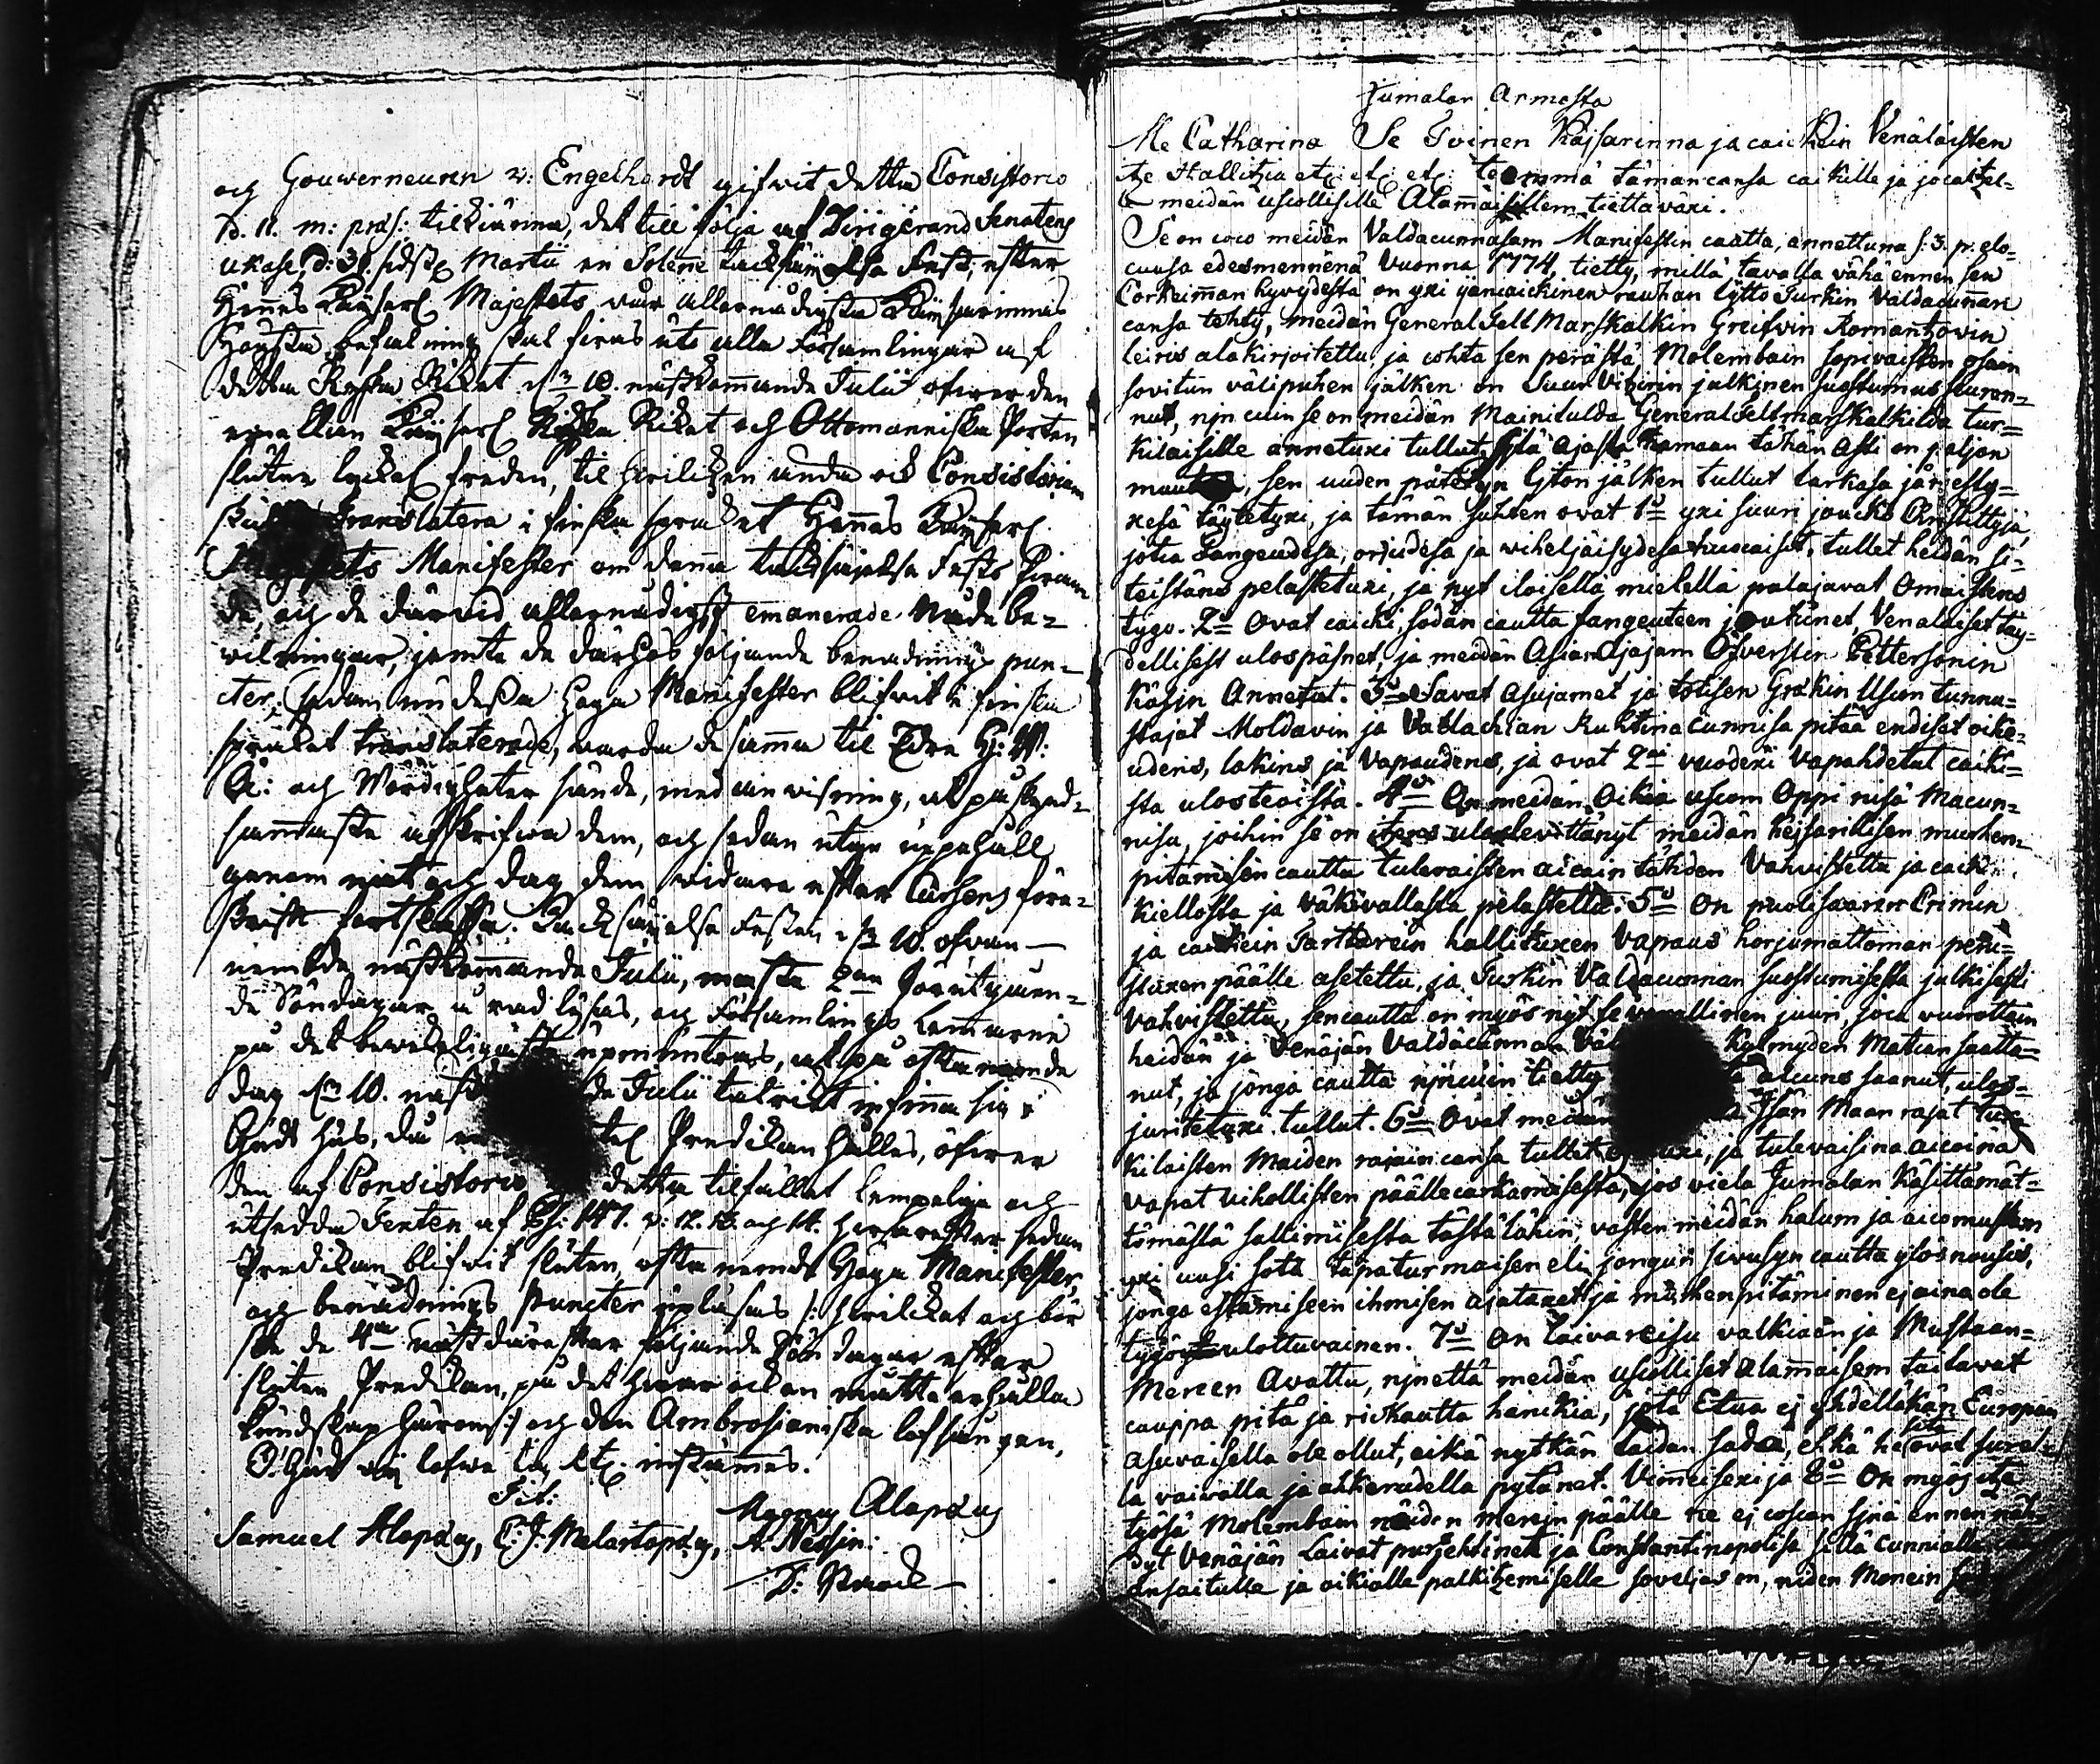 och Gouverneuren v: Engelhardt gifwit detta Consistorio
d. 11. m: præs: tilkiänna, det till följe af Dirigerand Senatens
ukase, d: 31 sidstl Martii en Solenne tacksäijelse Fest, efter
Hennes Käyserl Majestets vår allernådigste Käyserinnas
Högsta befalning skal firas uti alla Församlingar af
detta Ryska Riket d. 10. nästkommande Julii öfwer den
emellan Käyserl Ryska Riket och Ottomanniska Porten
slutne freden, til hwilcken ända ock Consistorium
translatera i finska språket Hennes Käyserl.
Manifester om denna tacksäijelse Fests firan
de, och de därwid allernådigst emanerade Nåde be=
wilningar, jemte de därhos följande benådnings punc=
ter, sedan nu dessa höga Manifester blifwit i finska
språket translaterade, warda de samma til Edra H: W:
Ä: och Wördigheter sände, med anwisning, at på skynd=
sammaste afskrifwa dem, och sedan utan uppehåll
genom natt och dag dem widare efter Cursens före=
skrift fortskaffa. Tacksäijelse Festen d. 10. ofwan
nemde nästkommande Julii, måste 2ne förutgåen=
de Söndagar å rad lysas, och Församlings Lemmarne
på det bewekeligaste upmuntras, at på ofta nemde
dag d. 10. Julii talrikt infinna sig i
Guds hus, då Predikan hålles, öfwer
den af Consistorio detta tilfället lempelige och
utsedda Texten af Ps: 147. v: 12. 13. och 14. hwarefter sedan
Predikan blifwit sluten, ofta nemde höga Manifester,
och benådnings puncter upläsas /: hwilcket och bör
ske de 4ra näst därefter följande Söndagar efter
sluten Predikan, på det hwar och en måtte erhålla
kundskap härom :/ och den Ambrosianska lofsången,
O! Gud wij lofwe tig etc. instämmes.
Tit:
Magnus Alopæus
Samuel Alopæus, C. J. Melartopæus, A. Nessin:

Jumalan Armosta
Me Catharina Se Toinen Kejsarinna ja caickein Venäläisten
Itze Hallitzia etc: etc: etc: teemmä tämän cansa caikille ja jocaitzel=
le meidän uscollisille Alammaisillem tiettäväxi.
Se on coco meidän Valdacunnasam Manifestin cautta, annettuna s: 3. p: elo=
cuusa edesmennenä Vuonna 1774, tietty, millä tavalla vähä ennen sen
Corkeimman hyvydestä on yxi ijancaickinen rauhan lijtto Turkin Valdacunnan
cansa tehty, meidän General Felt Marskalkin Greifvin Romantzovin
leiris alakirjoitettu, ja cohta sen perästä Molembain sopivaisten osain
sovitun välipuhen jälken on Suur Visirin julkinen suostumus seuran=
nut, nijn cuin se on meidän Mainitulda General Feltmarskalkilda Tur=
kilaisille annetuxi tullut. Sijtä ajasta hamaan tähän asti on paljon
muuta, sen uuden päätetyn lijton jälken tullut tarkasa järjesty=
xesä täytetyxi, ja tämän suhten ovat 1o yxi suuri joucko Cristittyjä,
jotca Fangeudesa, orjudesa ja viheljäisydesä huocaisit, tullet heidän si=
teistäns pelastetuxi, ja nyt iloisella mielellä palajavat Omaistens
tygö. 2o Ovat caicki, sodan cautta fangeuteen joutunet Venäläiset täy=
dellisest ulospäsnet, ja meidän Asian Ajajam Öfverstin Pettersonin
Käsijn Annetut. 3o Savat asujamet ja totisen Grækin Uscon tunnu=
stajat Moldavin ja Vallachian Ruhtinacunnisa pitää endiset oike=
udens, lakins ja vapaudens, ja ovat 2xi vuodexi vapahdetut caiki=
sta ulosteoista. 4o On meidän Oikia uscom Oppi nisä Maacun=
nisa, joihin se on itzens uloslevittänyt meidän Keisarillisen murhen=
pitämisen cautta tulevaisten aicain tähden Vahvistettu ja caiki
kiellosta ja väkivallasta pelastettu. 5o On puolisaaren Crimin
ja caickein Tarttarein hallituxen Vapaus horjumattoman peru=
stuxen päälle asetettu, ja Turkin Valdacunnan suostumisesta julkisesti
vahvistettu, sencautta on myös nyt se juuri, joca vuorottain
heidän ja Venäjän Valdacunnan Kalmyden Matcan saatta=
nut, ja jonga cautta nijncuin tietty alcuns saanut, ulos=
juuritetuxi tullut. 6o Ovat meidän Isän Maan rajat Tur=
kilaisten Maiden rajain cansa tullet, ja tulevaisina aicoina
vapat vihollisten päällecarkamisesta, jos vielä Jumalan Käsittämät=
tömästä sallimisesta tästälähin, vasten meidän halum ja aicomustam
yxi uusi sota tapaturmaisen eli jongun sivusyn cautta ylösnousis,
jonga estämiseen ihmisen ajatuxet ja murhenpitäminen ej aina ole
tygöulottuvainen. 7o On laivareisu valkiaan ja Mustaan=
Mereen Avattu, nijnettä meidän uscolliset alammaisem taitavat
cauppa pitä ja rickautta hankia, jota Etua ej yhdelläkän Europan
asuvaisella ole ollut, eikä nytkän taidan sada, ehkä he sitä ovat surel=
la vaivalla ja ahkerudella pytänet. Viimeisexi ja 8o On myös itze
työsä Molembain näiden merein päälle ne ej coscan sijnä ennen näh=
dyt Venäjän Laivat purjehtinet ja Constantinopolisa sillä cunnialla
ansaitulla ja oikialla palkitzemisella soveljas on, niden Merein